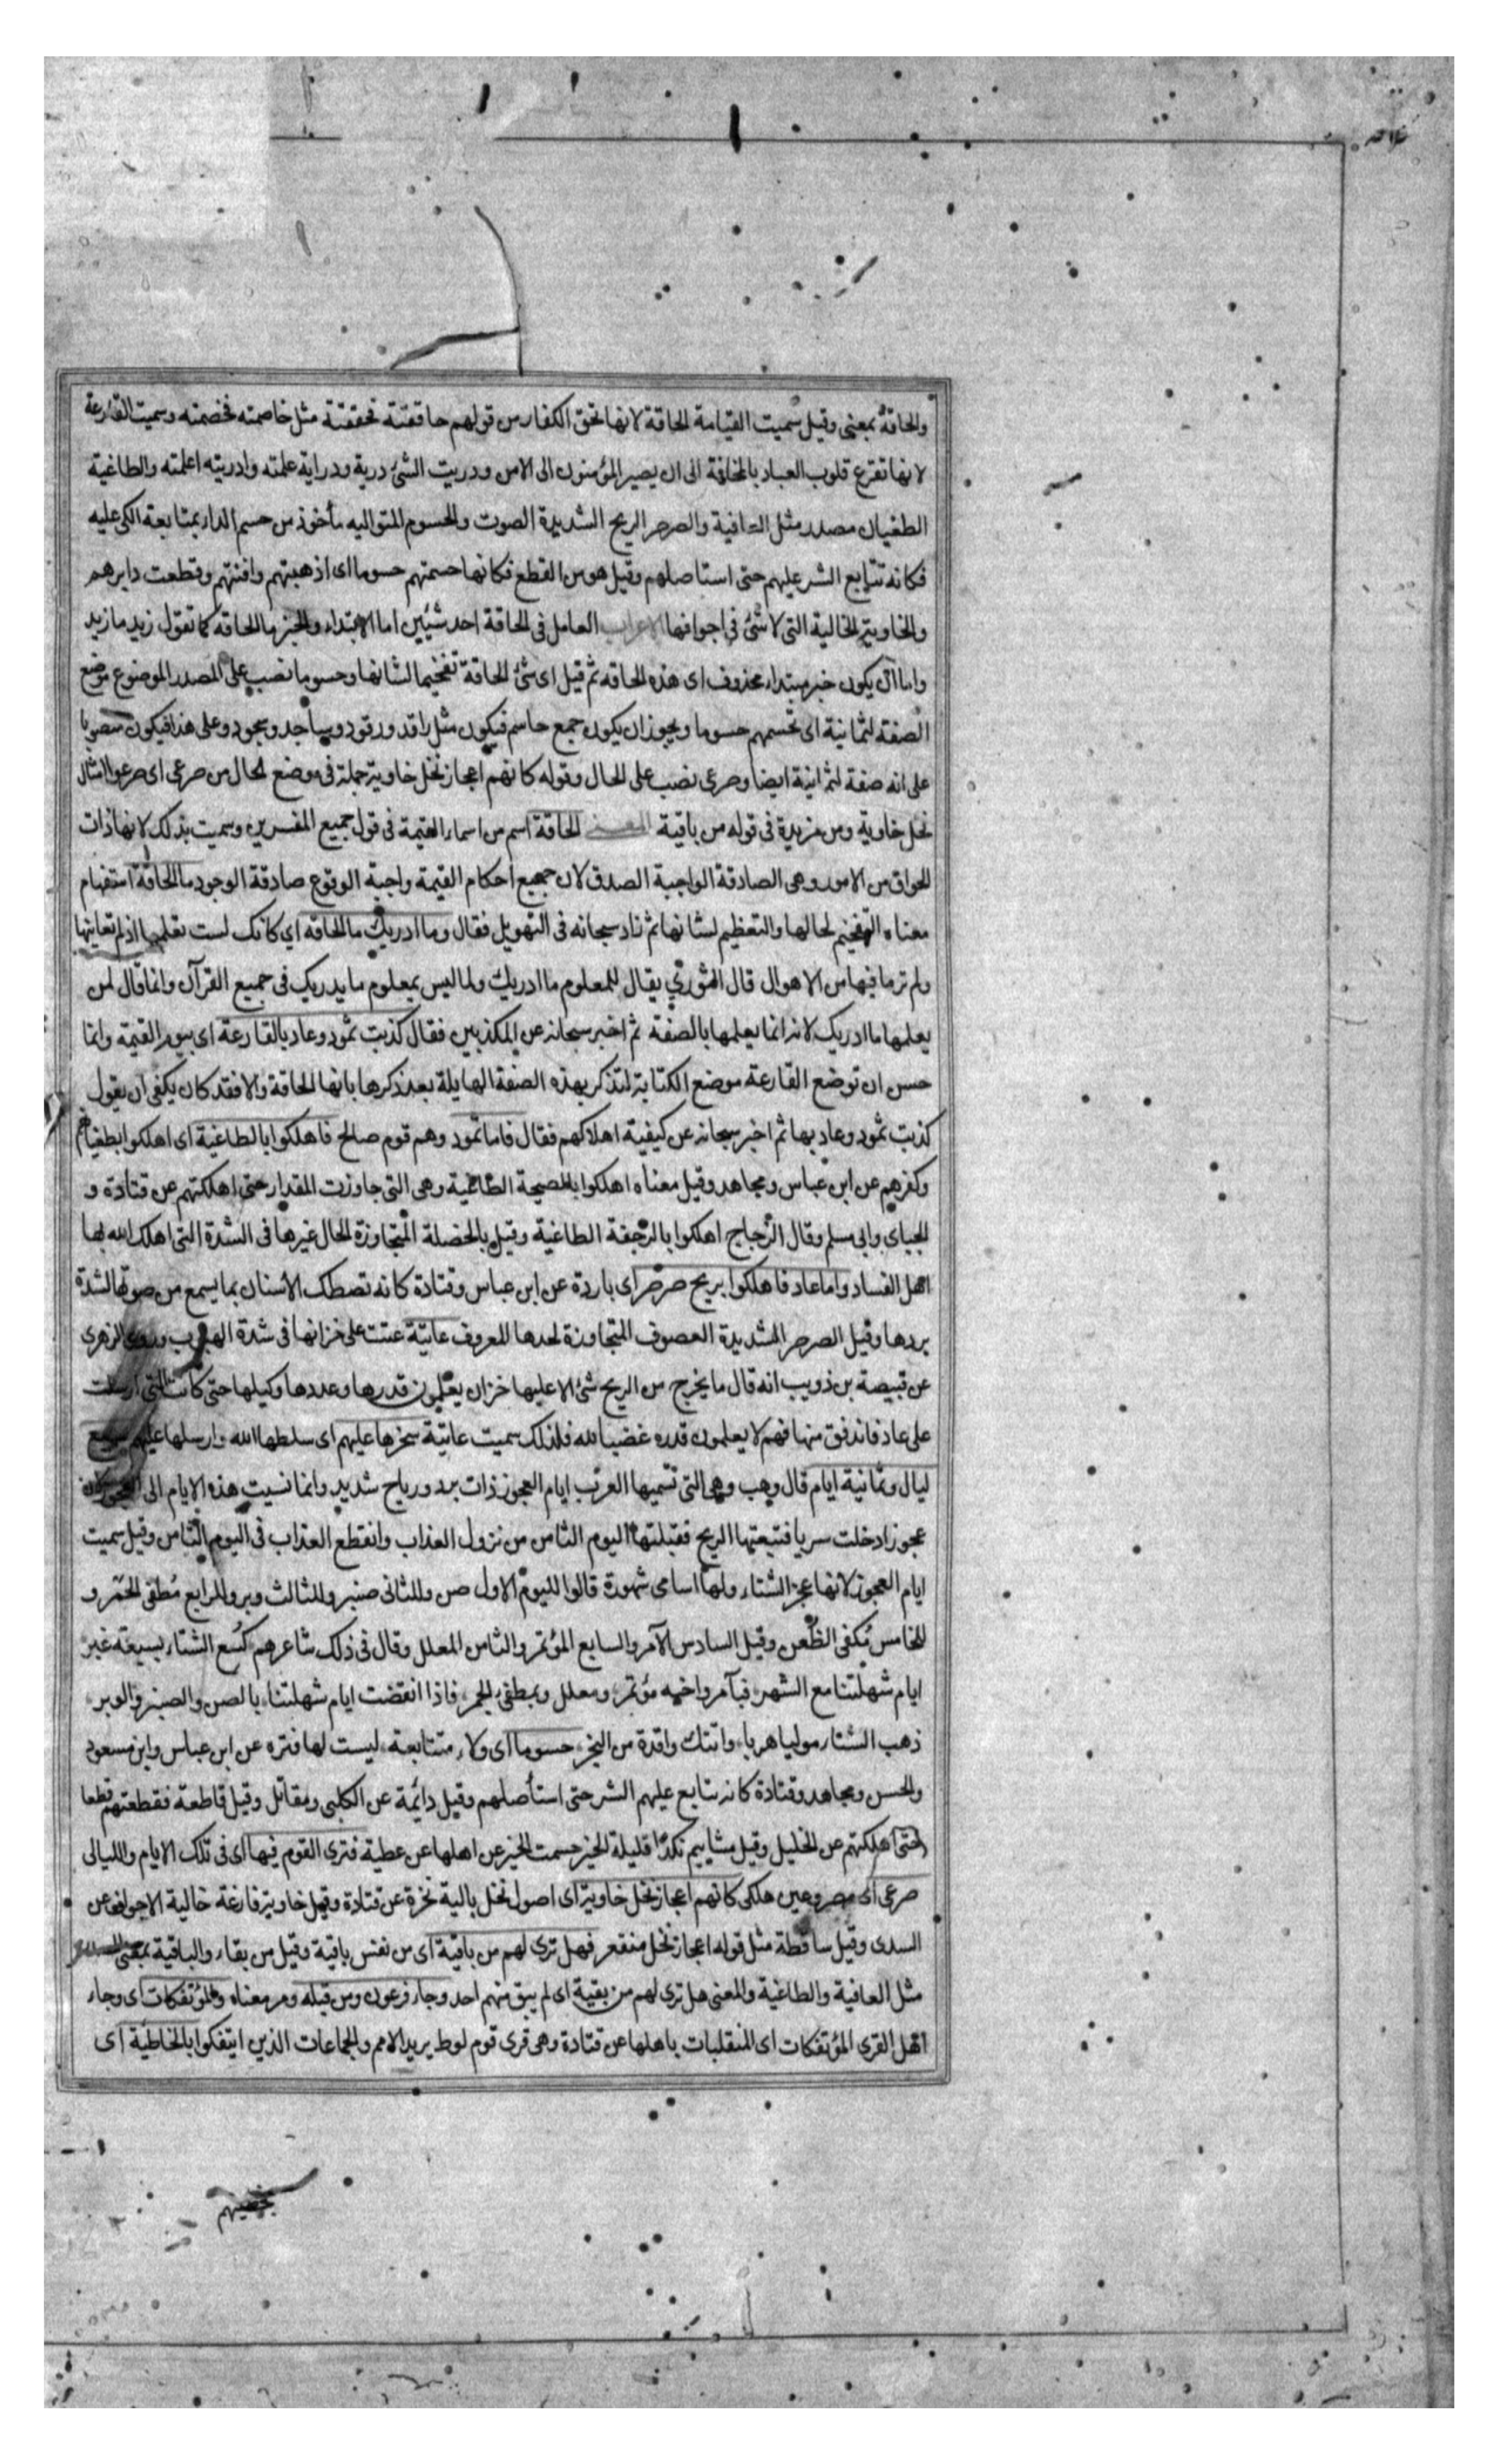 والحاقة بمعنى وقيل سُميت القيامة الحاقة لانها تحق الكفار من قولهم حاققته فحققته مثل خاصمته فخصمته وسميت القارعة
لانها تقرع قلوب العباد بالمخافة الى ان يصير المؤمنون الى الامن ودريت الشئ درية ودراية علمته وادريته اعلمته والطاغية
الطغيان مصدر مثل العافية والصرصر الريح الشديدة الصوت والحسوم المتواليه مأخوذ من حسم الداء بمتابعة الكى عليه
فكانه تتابع الشر عليهم حتى استاصلهم وقيل هو من القطع فكانها حسمتهم حسوما اى اذهبتهم وافنتهم وقطعت دابرهم
والخاوية الخالية التى لا شئ فى اجوافها الاعراب العامل فى الحاقة احد شيئين اما الابتداء والخبر ما الحاقه كما تقول زيد ما زيد
واما ان يكون خبر مبتداء محذوف اى هذه الحاقه ثم قيل اى شئ الحاقة تفخيما لشانها وحسوما نصب على المصدر الموضوع موضع
الصفة لثمانية اى تحسمهم حسوما ويجوز ان يكون جمع حاسم فيكون مثل راقد ورقود وساجد وسجود وعلى هذا فيكون منصوبا
على انه صفة لثمانية ايضا وصرعى نصب على الحال وقوله كانهم اعجاز نخل خاوية جملة فى موضع الحال من صرعى اى صرعوا امثال
نخل خاوية ومن مزيدة فى قوله من باقية المعنى الحاقة اسم من اسماء القيمة فى قول جميع المفسرين وسميت بذلك لانها ذات
الحواق من الامور وهى الصادقة الواجبة الصدق لان جميع احكام القيمة واجبة الوقوع صادقة الوجود ما الحاقة استفهام
معناه التفخيم لحالها والتعظيم لشانها ثم زاد سبحانه فى التهويل فقال وما ادريك ما الحاقه اي كانك لست تعلمها اذ لم تعاينها
ولم تر ما فيها من الاهوال قال الثوري يقال للمعلوم ما ادريك ولما ليس بمعلوم ما يدريك فى جميع القرآن وانما قال لمن
يعلمها ما ادريك لانه انما يعلمها بالصفة ثم اخبر سبحانه عن المكذبين فقال كذبت ثمود وعاد بالقارعة اى بيوم القيمة وانما
حسن ان توضع القارعة موضع الكناية لتذكر بهذه الصفة الهايلة بعد ذكرها بانها الحاقة والا فقد كان يكفى ان يقول
كذبت ثمود وعاد بها ثم اخبر سبحانه عن كيفية اهلاكهم فقال فاما ثمود وهم قوم صالح فاهلكوا بالطاغية اى اهلكوا بطغيانهم
وكفرهم عن ابن عباس ومجاهد وقيل معناه اهلكوا بالصيحة الطاغية وهى التى جاوزت المقدار حتى اهلكتهم عن قتادة و
الجباى وابى مسلم وقال الزجاج اهلكوا بالرجفة الطاغية وقيل بالخصلة المتجاوزة لحال غيرها فى الشدة التى اهلك الله بها
اهل الفساد واما عاد فاهلكوا بريح صرصر اى باردة عن ابن عباس وقتادة كانه تصطك الاسنان بما يسمع من صوتها لشدة
بردها وقيل الصرصر الشديدة العصوف المتجاوزة لحدها المعروف عاتية عتت على خزانها فى شدة الهبوب وروى الزهرى
عن قبيصة بن ذويب انه قال ما يخرج من الريح شئ الا عليها خزان يعلمون قدرها وعددها وكيلها حتى كانت التى ارسلت
على عاد فاندفق منها فهم لا يعلمون قدره غضبا لله فلذلك سميت عاتية سخرها عليهم اى سلطها الله وارسلها عليهم سبع
ليال وثمانية ايام قال وهب وهى التى تسميها العرب ايام العجوز ذات برد ورياح شديد وانما نسبت هذه الايام الى العجوز لان
عجوزا دخلت سربا فتبعتها الريح فقتلتها اليوم الثامن من نزول العذاب وانقطع العذاب فى اليوم الثامن وقيل سميت
ايام العجوز لانها عجز الشتاء ولها اسامى مشهورة قالوا لليوم الاول صن وللثانى صنبر وللثالث وبر وللرابع مُطفى الجمر و
للخامس مُكفى الظعن وقيل السادس الآمر والسابع المؤتمر والثامن المعلل وقال فى ذلك شاعرهم كُسع الشتاء بسبعة غبر
ايام شهلتنا مع الشهر فبآمر واخيه مؤتمر ومعلل وبمطفئ الجمر فاذا انقضت ايام شهلتنا بالصن والصنبر والوبر
ذهب الشتاء موليا هربا واتتك واقدة من النجر حسوما اى ولاء متتابعة ليست لها فتره عن ابن عباس وابن مسعود
والحسن ومجاهد وقتادة كانه تتابع عليهم الشر حتى استأصلهم وقيل دائمة عن الكلبى ومقاتل وقيل قاطعة فقطعتهم قطعا
حتى اهلكتهم عن الخليل وقيل مشاييم نكدًا قليلة الخير حسمت الخير عن اهلها عن عطية فترى القوم فيها اى فى تلك الايام والليالى
صرعى اى مصروعين هلكى كانهم اعجاز نخل خاوية اى اصول نخل بالية نخرة عن قتادة وقيل خاوية فارغة خالية الاجواف عن
السدى وقيل ساقطة مثل قوله اعجاز نخل منقعر فهل ترى لهم من باقية اى من نفس باقية وقيل من بقاء والباقية بمعنى المصدر
مثل العافية والطاغية والمعنى هل ترى لهم من بقية اى لم يبق منهم احد وجاء فرعون ومن قبله ومر معناه والمؤتفكات اى وجاء
اهل القرى المؤتفكات اى المنقلبات باهلها عن قتادة وهى قرى قوم لوط يريد الامم والجماعات الذين ايتفكوا بالخاطئة اى